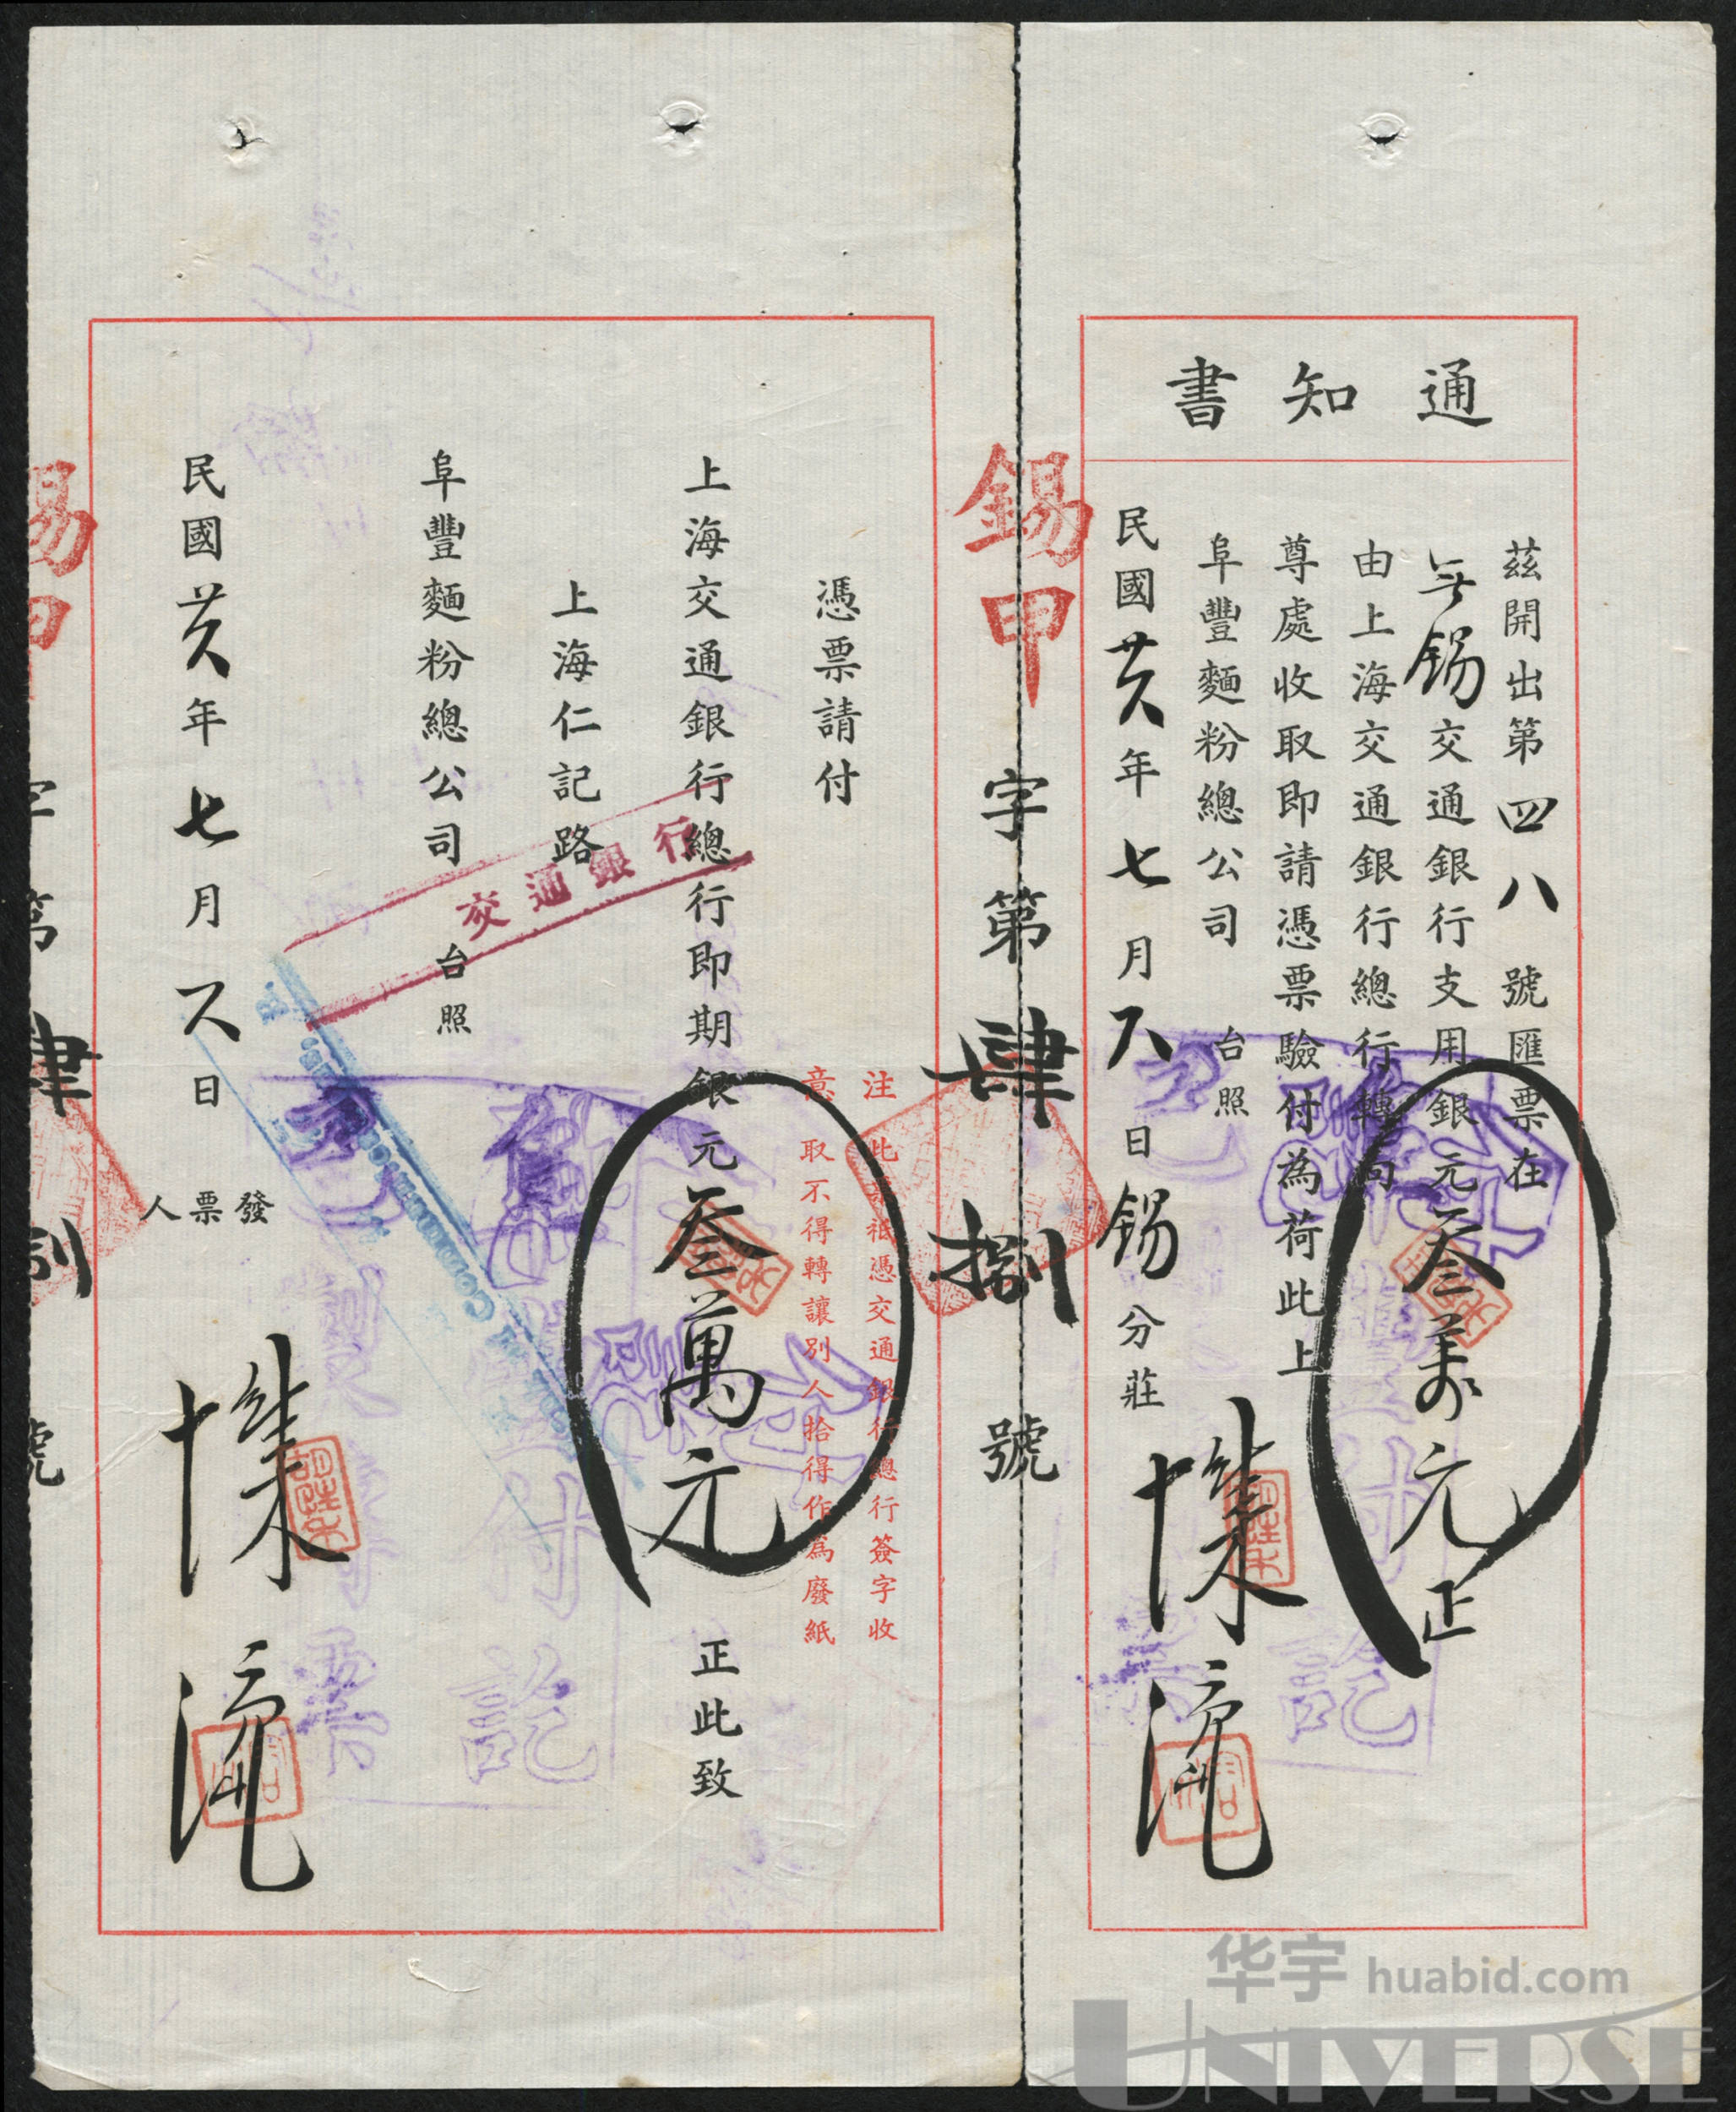 通知書
茲開出第四八號匯票在
無錫交通銀行支用銀元叁萬元正
由上海交通銀行總行轉向
尊處收取即請憑票驗付為荷此上
阜豐麵粉總公司 台照
民國廿六年七月六日錫分莊
錫甲字第肆捌號
注 此票祇憑交通銀行總行簽字收
意 取不得轉讓別人拾得作為廢紙
憑票請付
上海交通銀行總行即期銀元叁萬元正此致
上海仁記路
阜豐麵粉總公司 台照
交通銀行
民國廿六年七月六日
發票人
錫甲字第肆捌號
华宇 huabid.com
UNIVERSE